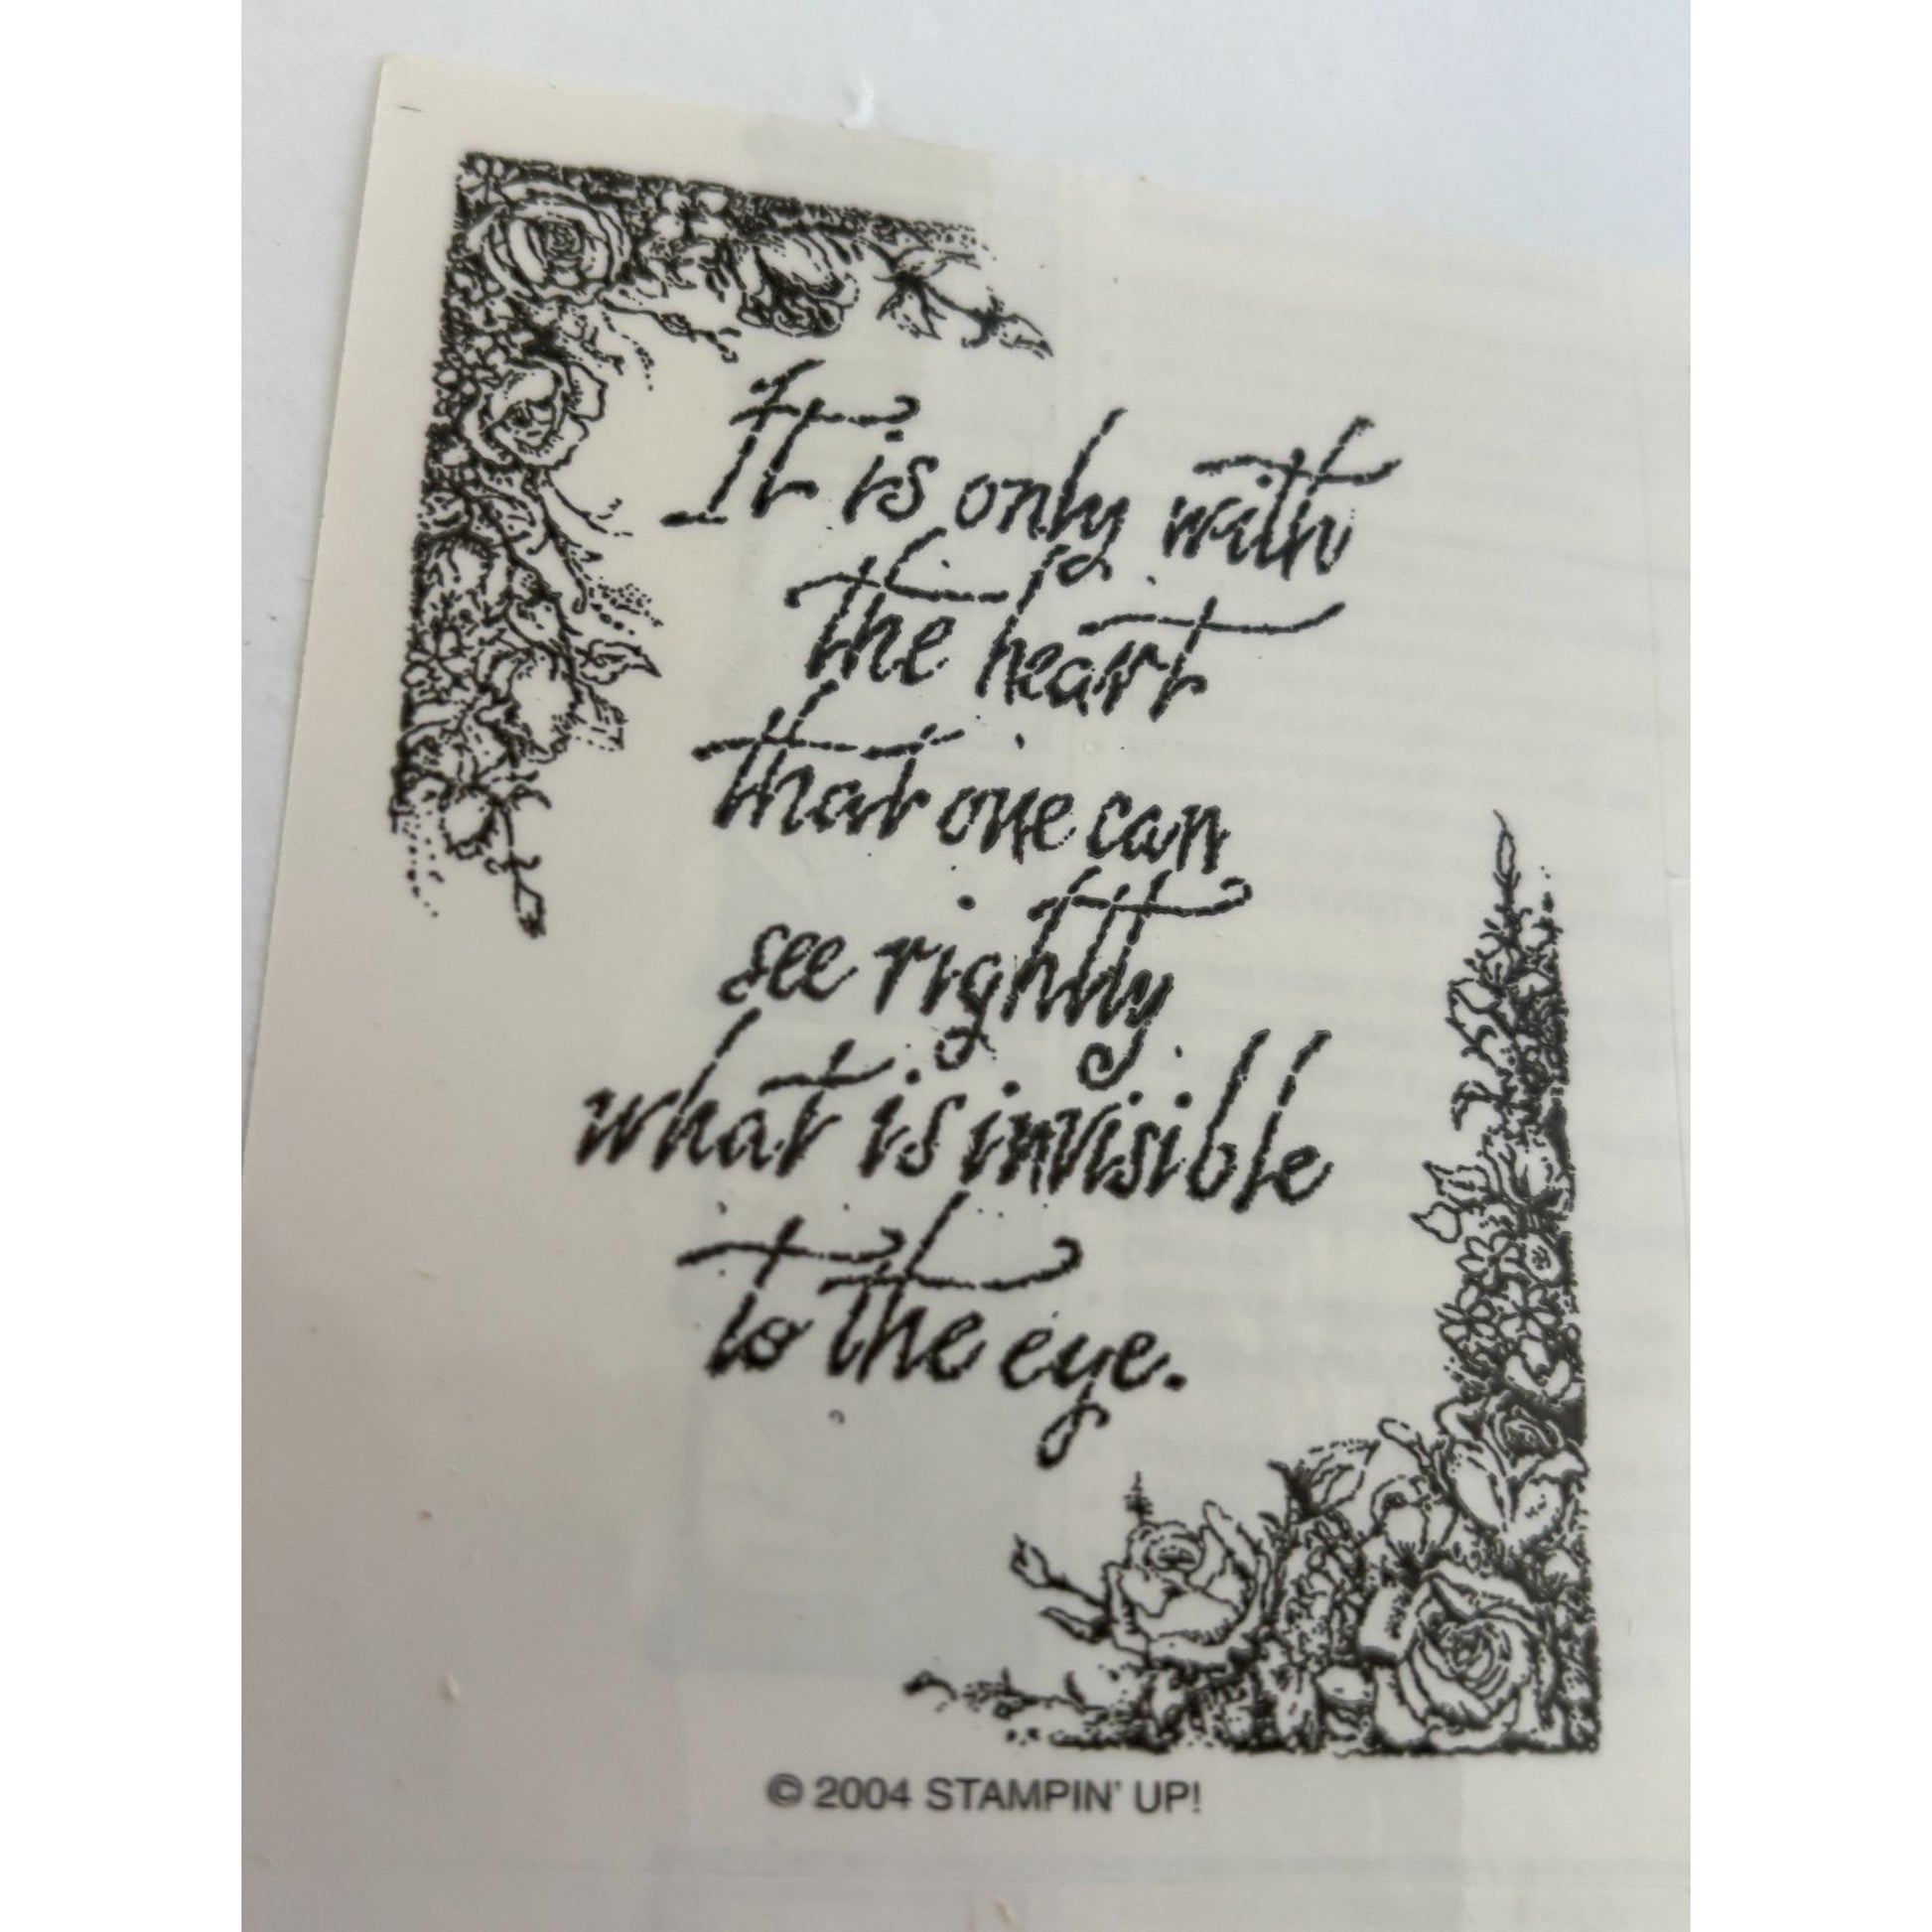 It is only with
the heart
that one can
see rightly
what is invisible
to the eye.
© 2004 STAMPIN' UP!